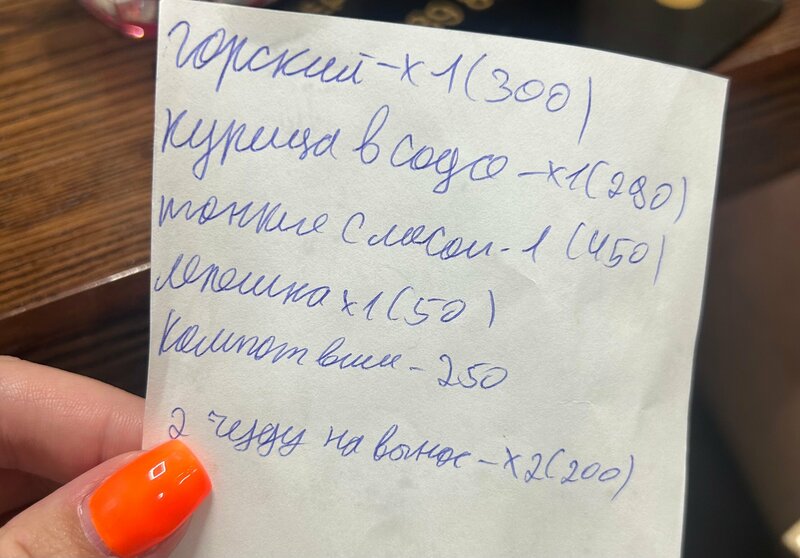 горский - х1(300)
курица в содо - х1(290)
тонкие с мясом - 1 (450)
лепешка х1(50)
Компот виш - 250
2 чуду на вынос - х2(200)